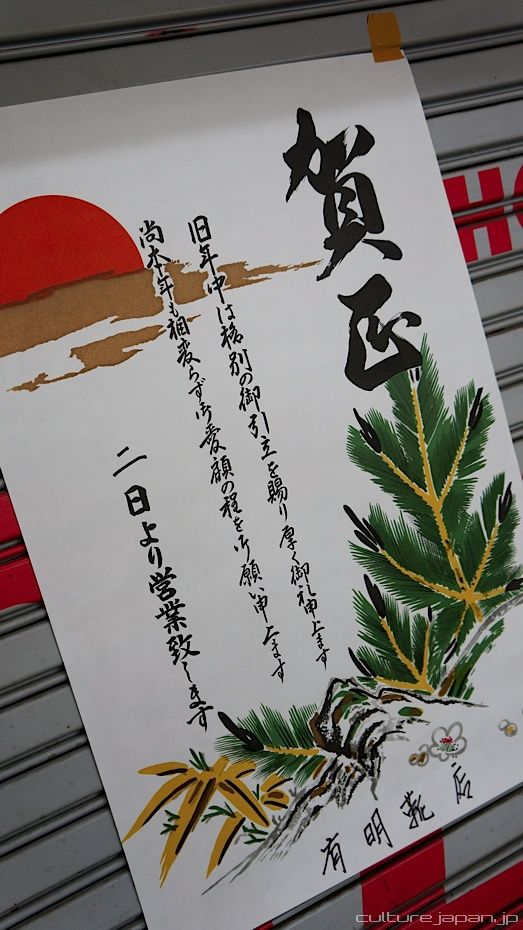 賀正
旧年中は格別の御引立を賜り厚く御礼申上ます
尚本年も相変らず御愛顧の程を御願い申上ます
二日より営業致します
有明靴店
HO
culturejapan.jp